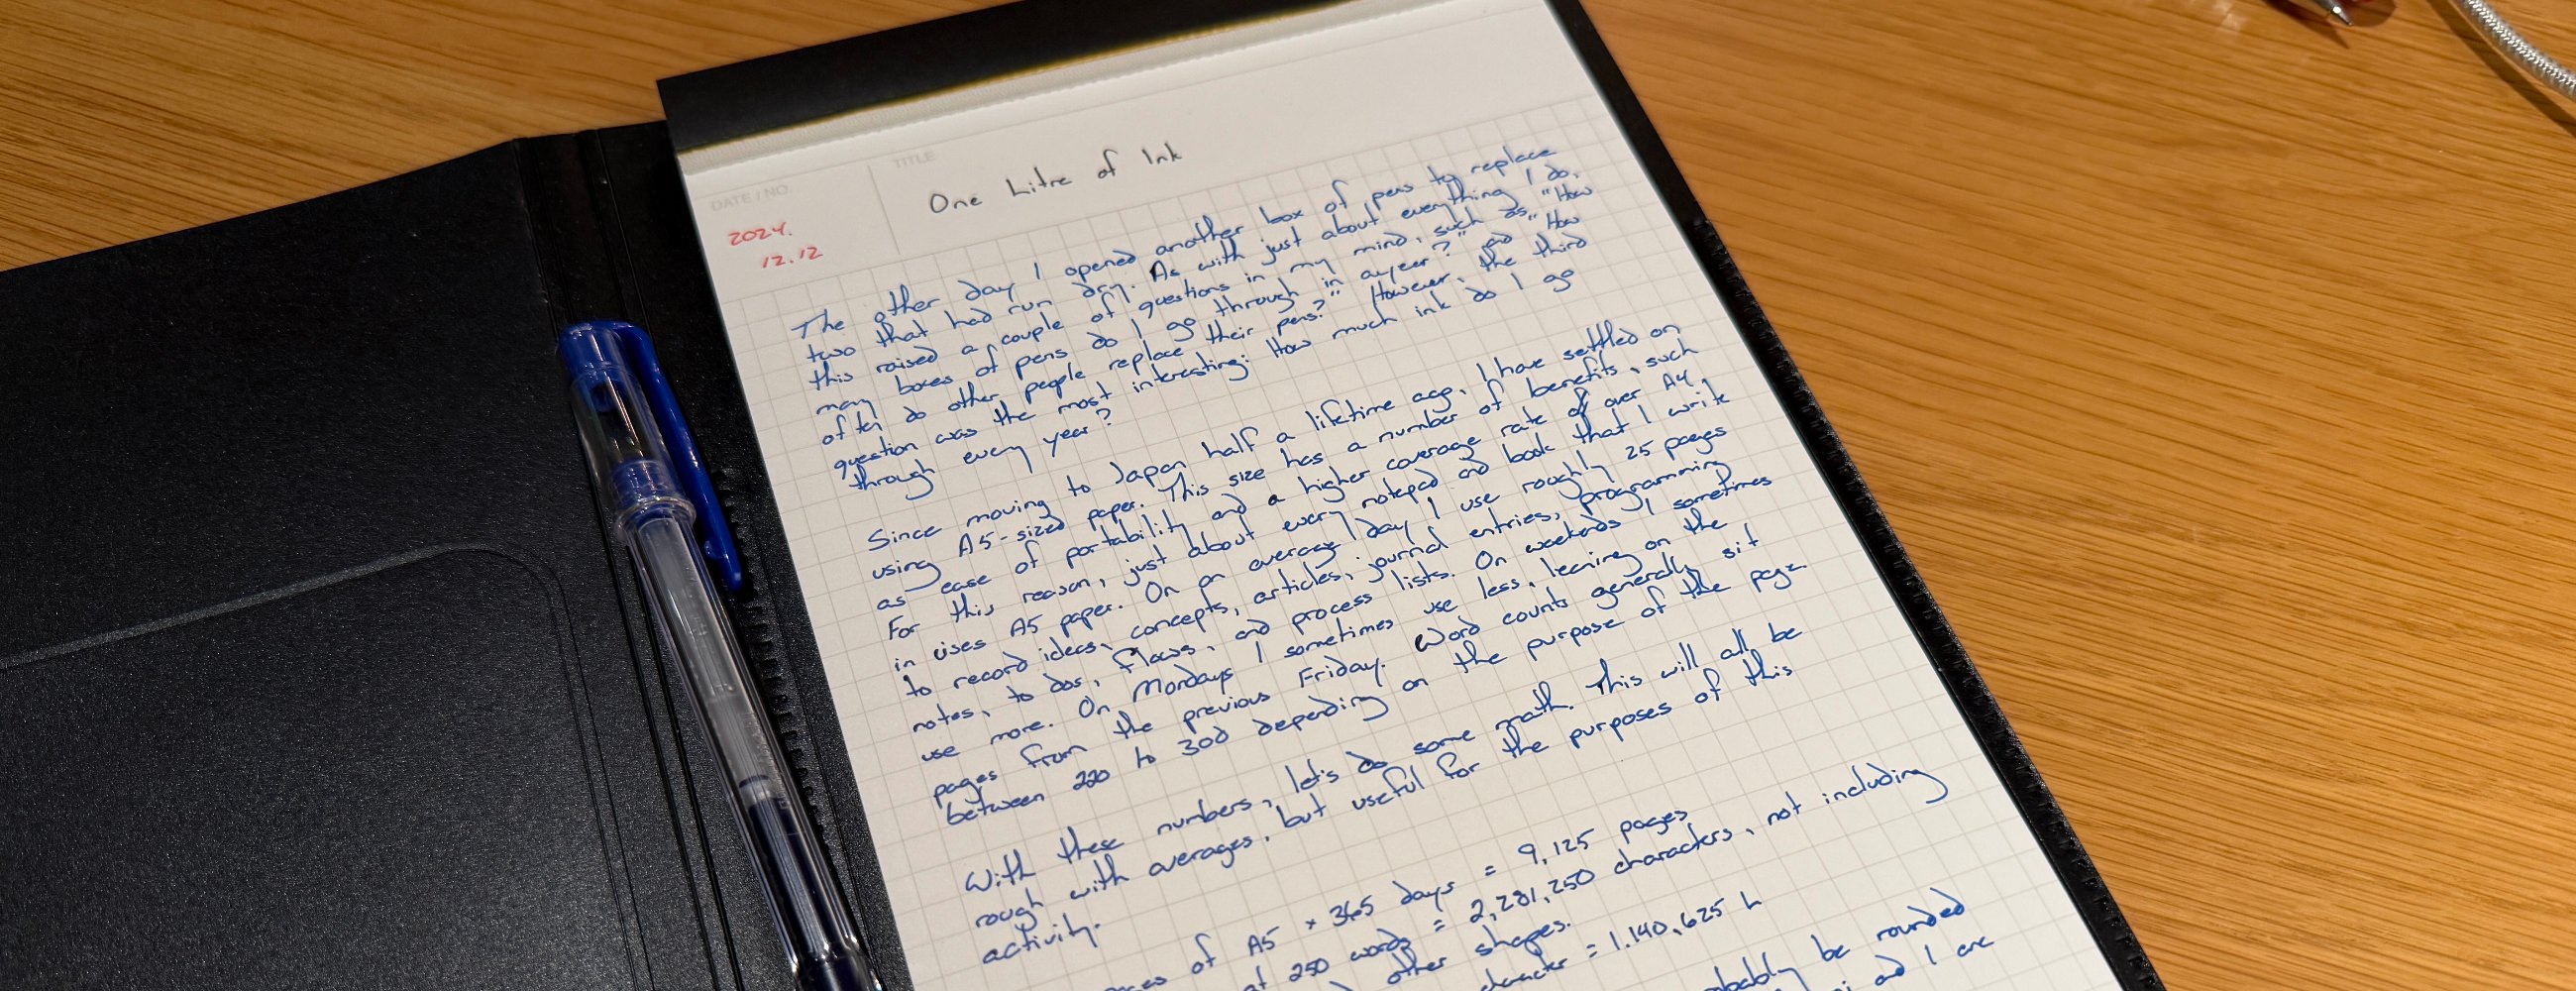 DATE / NO.
TITLE
2024.
12.12
One Litre of Ink
The other day I opened another box of pens to replace
two that had run dry. As with just about everything I do,
this raised a couple of questions in my mind, such as, "How
many boxes of pens do I go through in a year?" and "How
often do other people replace their pens?" However, the third
question was the most interesting: How much ink do I go
through every year?
Since moving to Japan half a lifetime ago, I have settled on
using A5-sized paper. This size has a number of benefits, such
as ease of portability and a higher coverage rate of over A4.
For this reason, just about every notepad and book that I write
in uses A5 paper. On an average day I use roughly 25 pages
to record ideas, concepts, articles, journal entries, programming
notes, to dos, flows, and process lists. On weekends I sometimes
use more. On Mondays I sometimes use less, leaning on the
pages from the previous Friday. Word counts generally sit
between 220 to 300 depending on the purpose of the page.
With these numbers, let's do some math. This will all be
rough with averages, but useful for the purposes of this
activity.
of A5 × 365 days = 9,125 pages
at 250 words = 2,281,250 characters, not including
other shapes.
character = 1.140,625 L
probably be rounded
and I are